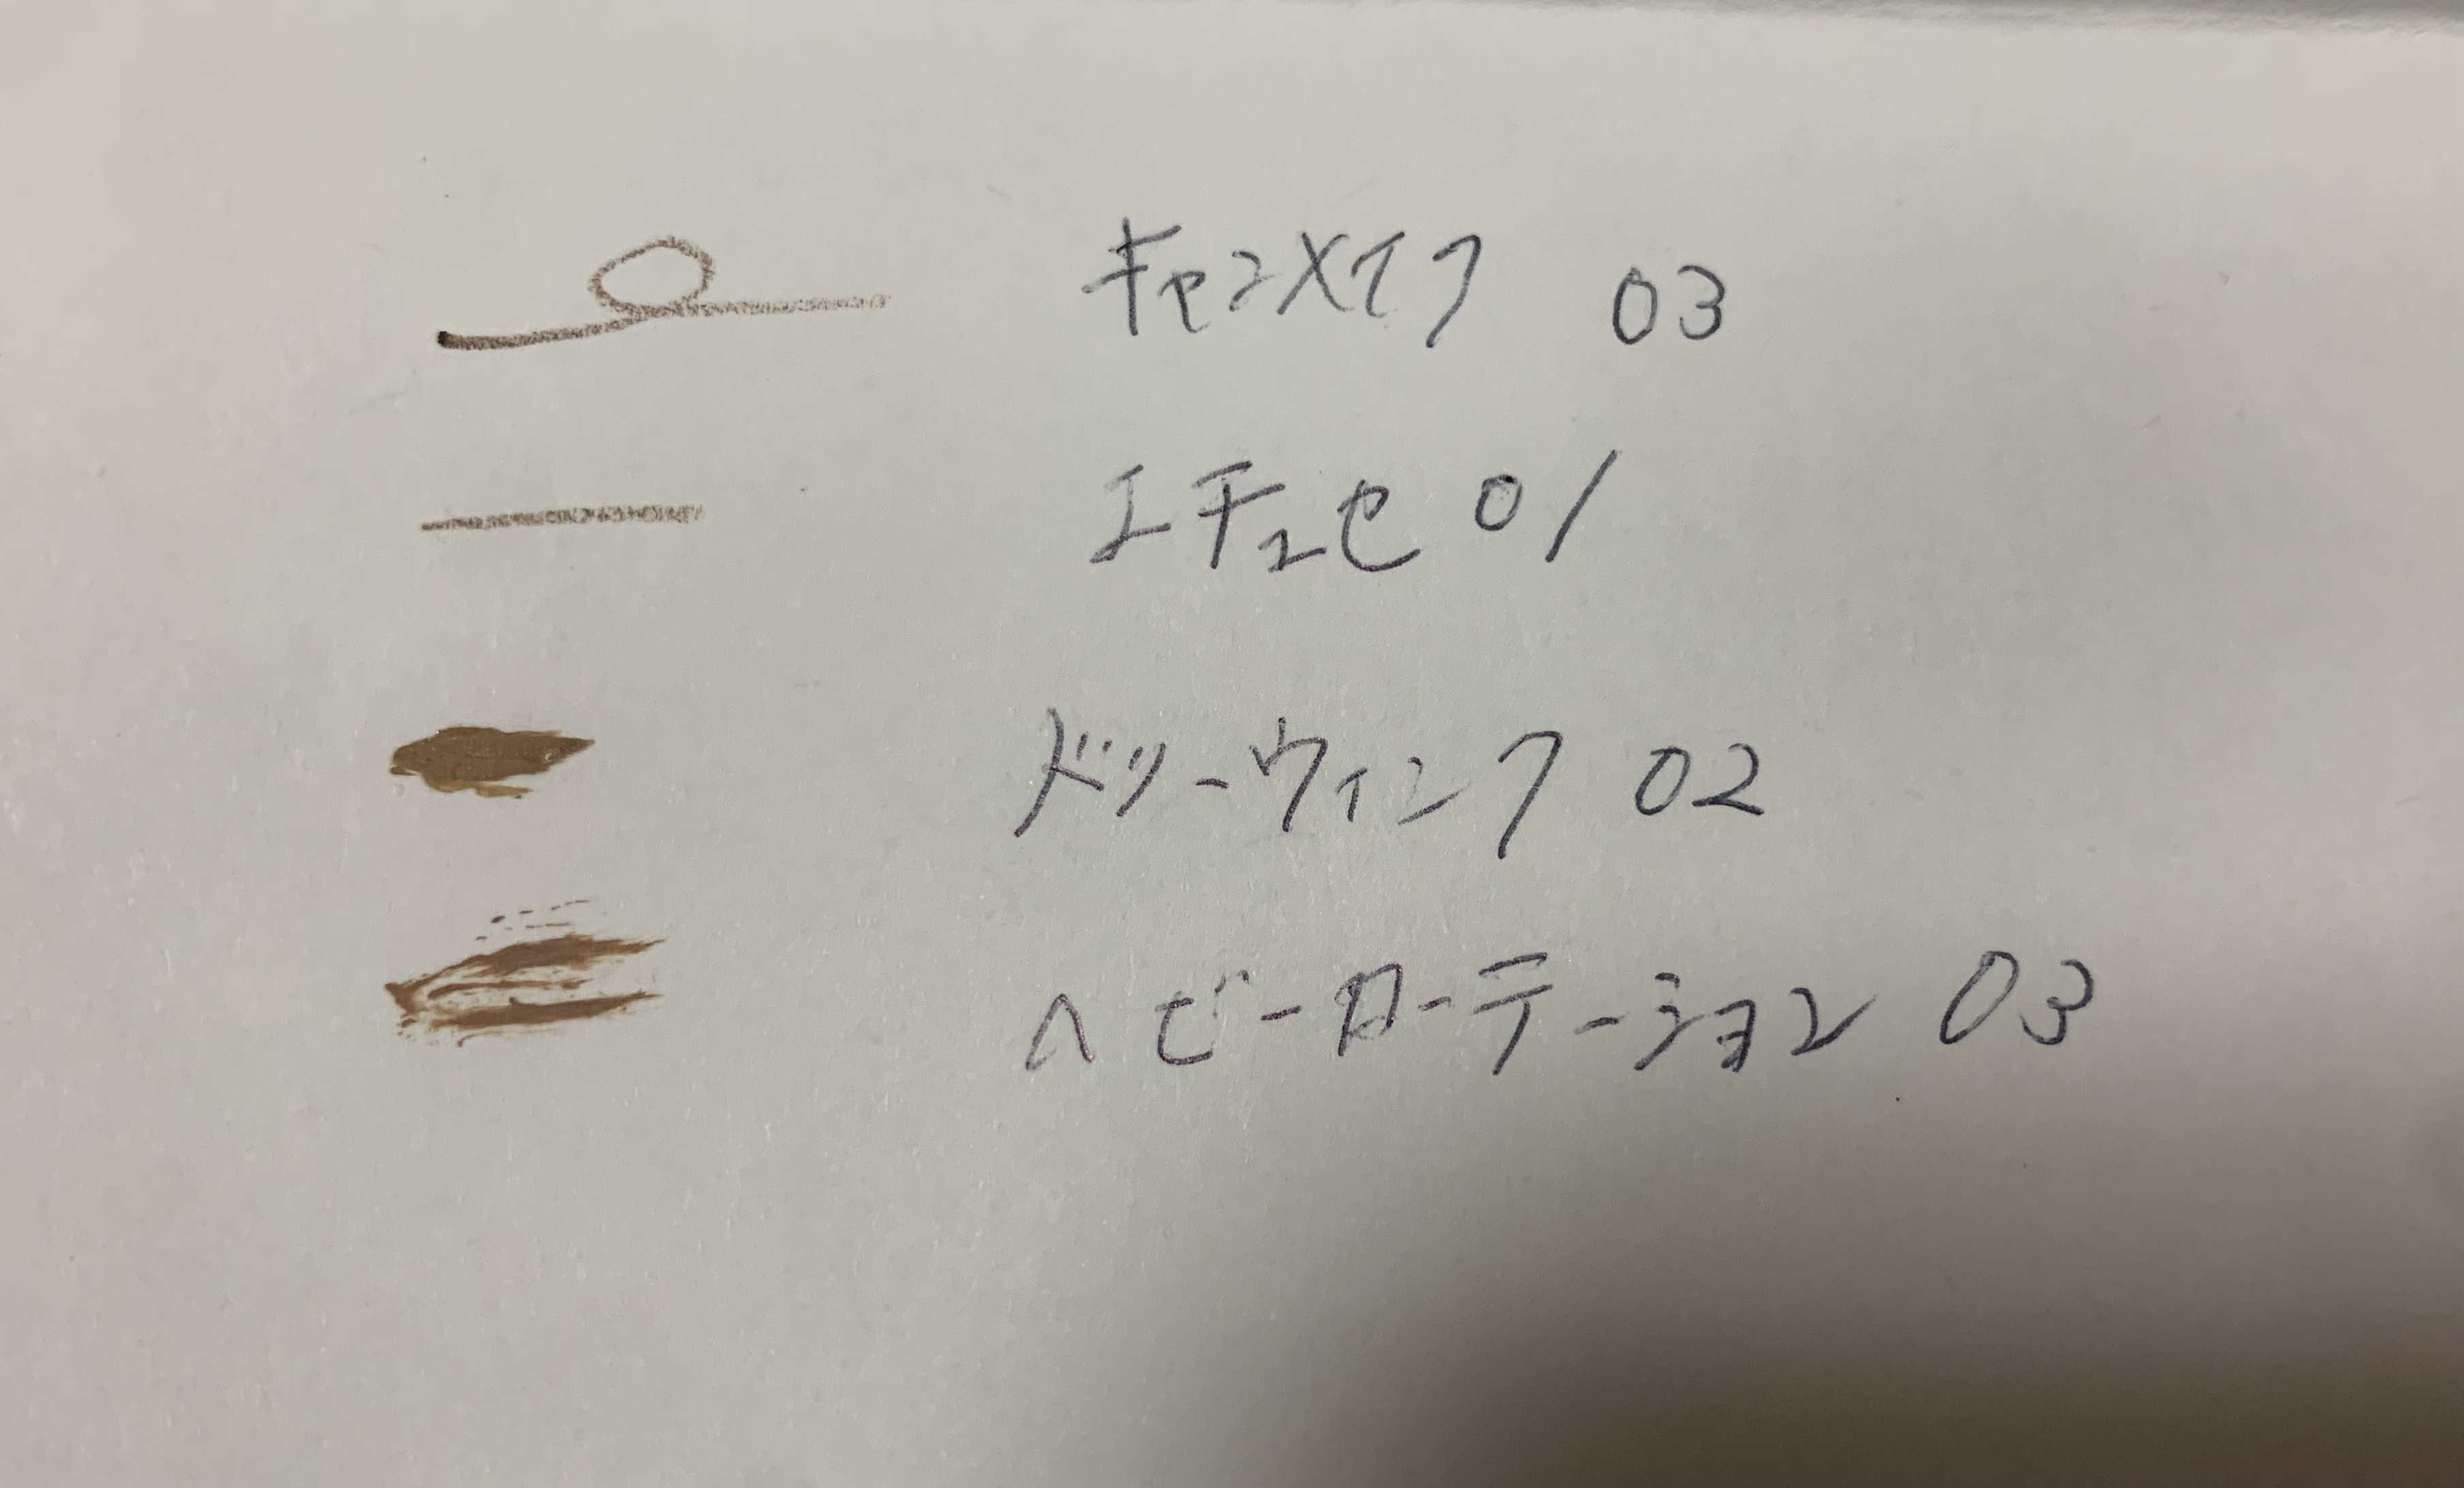 キャンメイク 03
エテュセ 01
ドリーウィンク 02
ヘビーローテーション 03